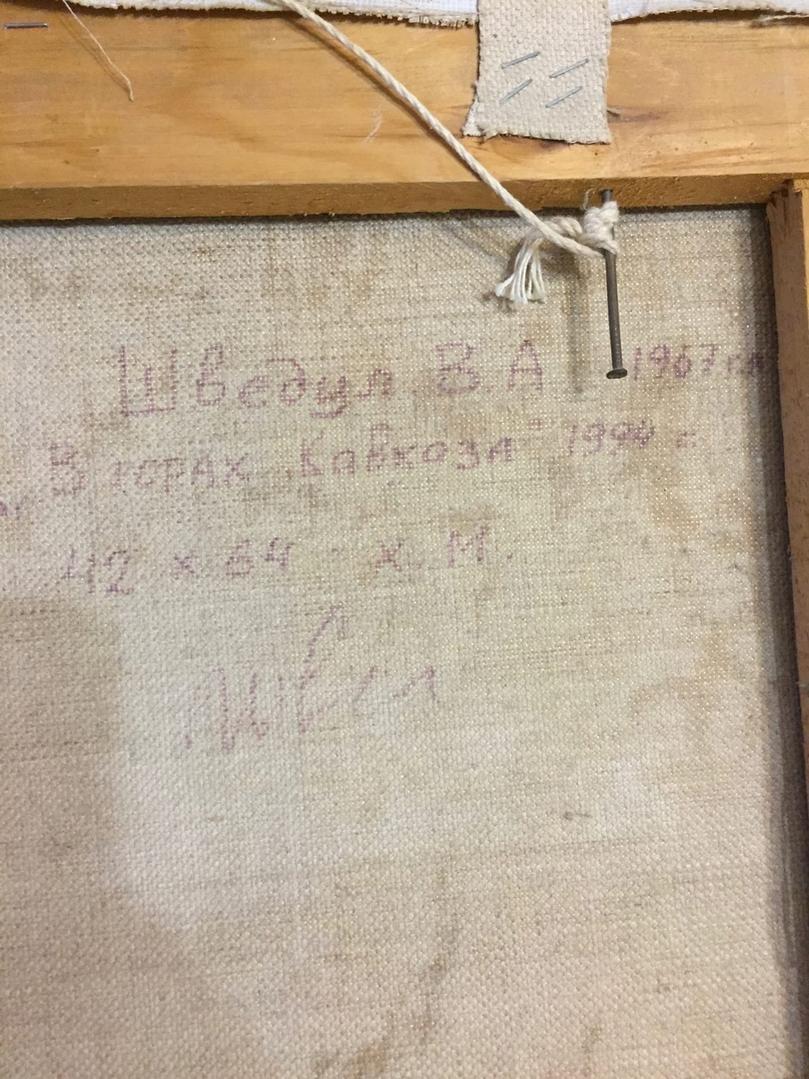 Шведул В.А 1967 г.р
В горах Кавказа" 1994 г
42 x 64 х.м.